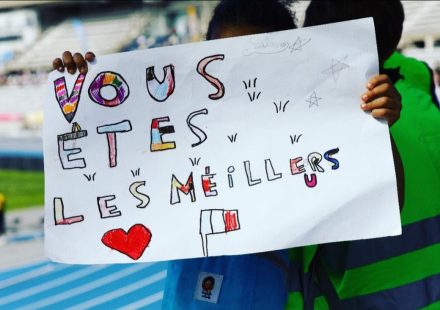 VOUS
ÊTES
LES MÉILLEURS